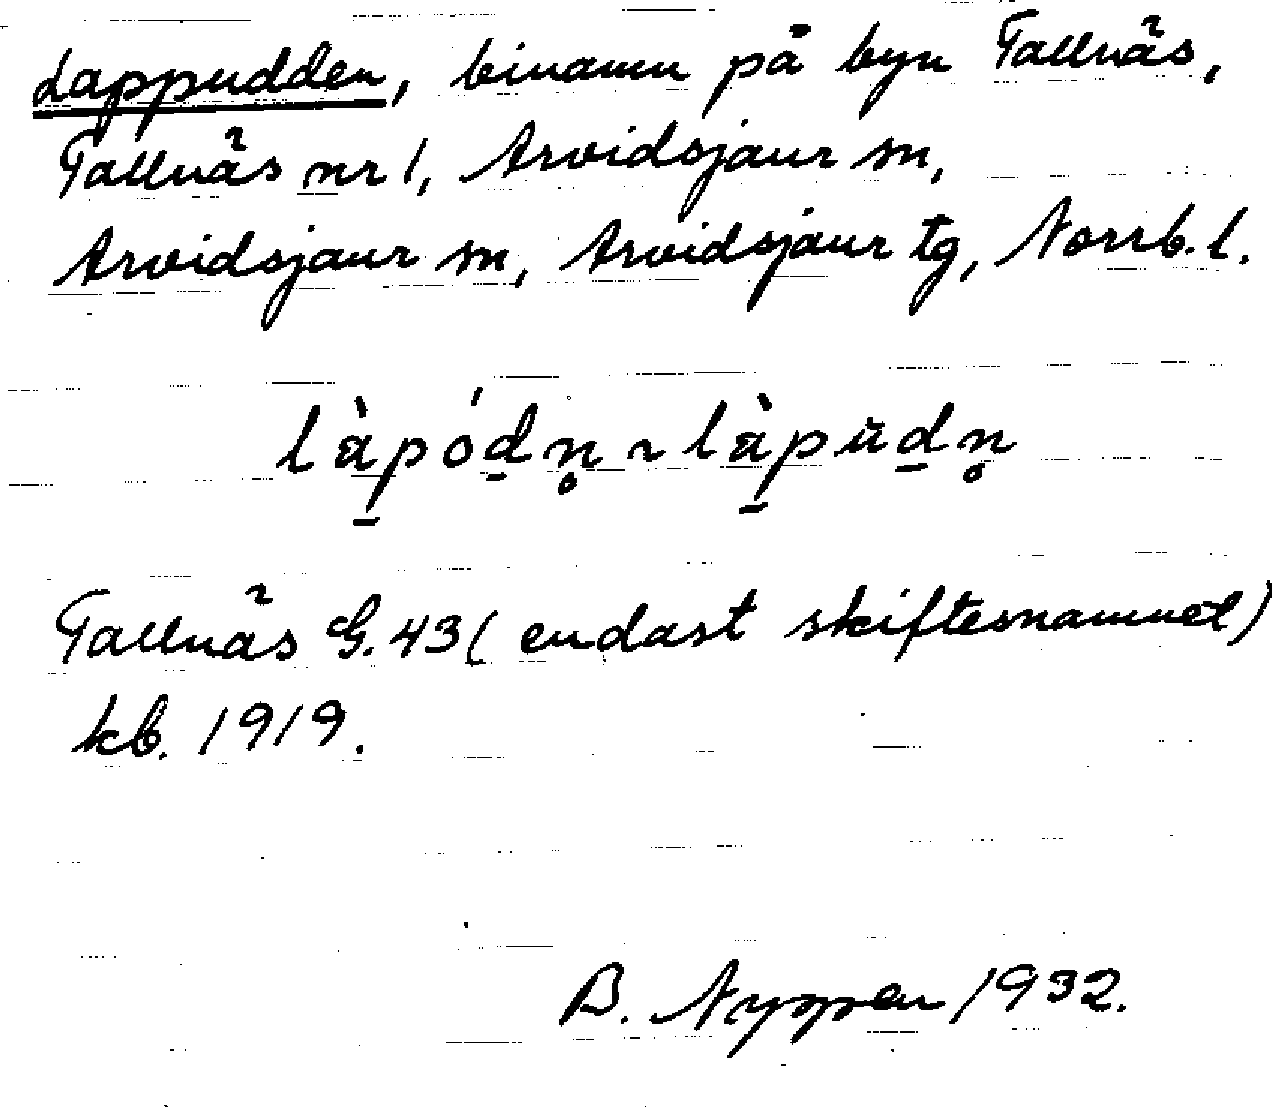 Lappudden, binamn på byn Tallnäs,
Tallnäs nr 1, Arvidsjaur sn,
Arvidsjaur sn, Arvidsjaur tg, Norrb. l.
là̱pódṇ̊ ~ là̱pŭdṇ̊
Tallnäs G. 43 (endast skiftesnamnet)
kb. 1919.
B. 1932.